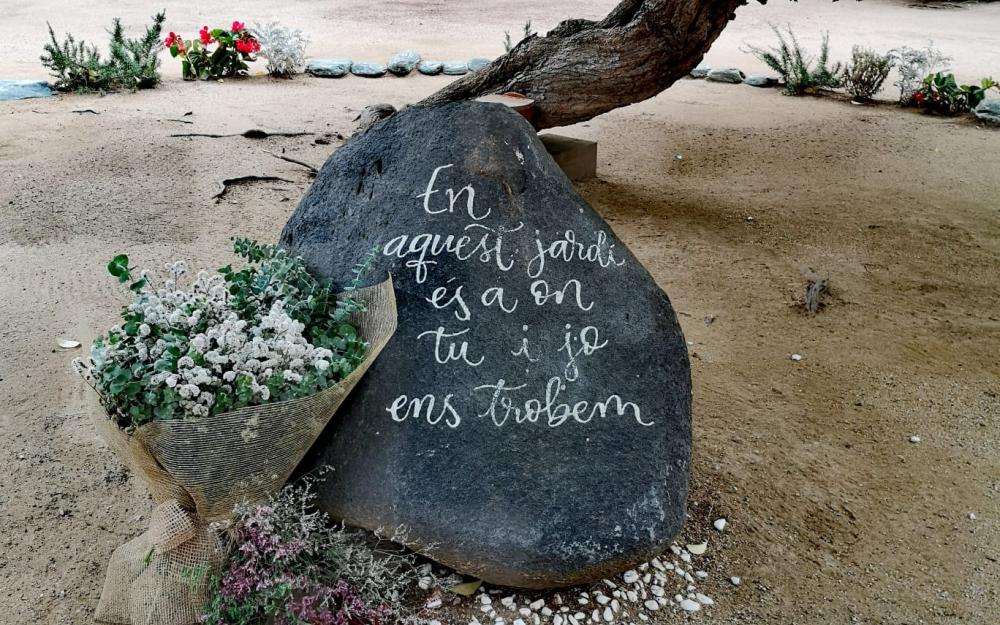 En
aquest jardí
és a on
tu i jo
ens trobem